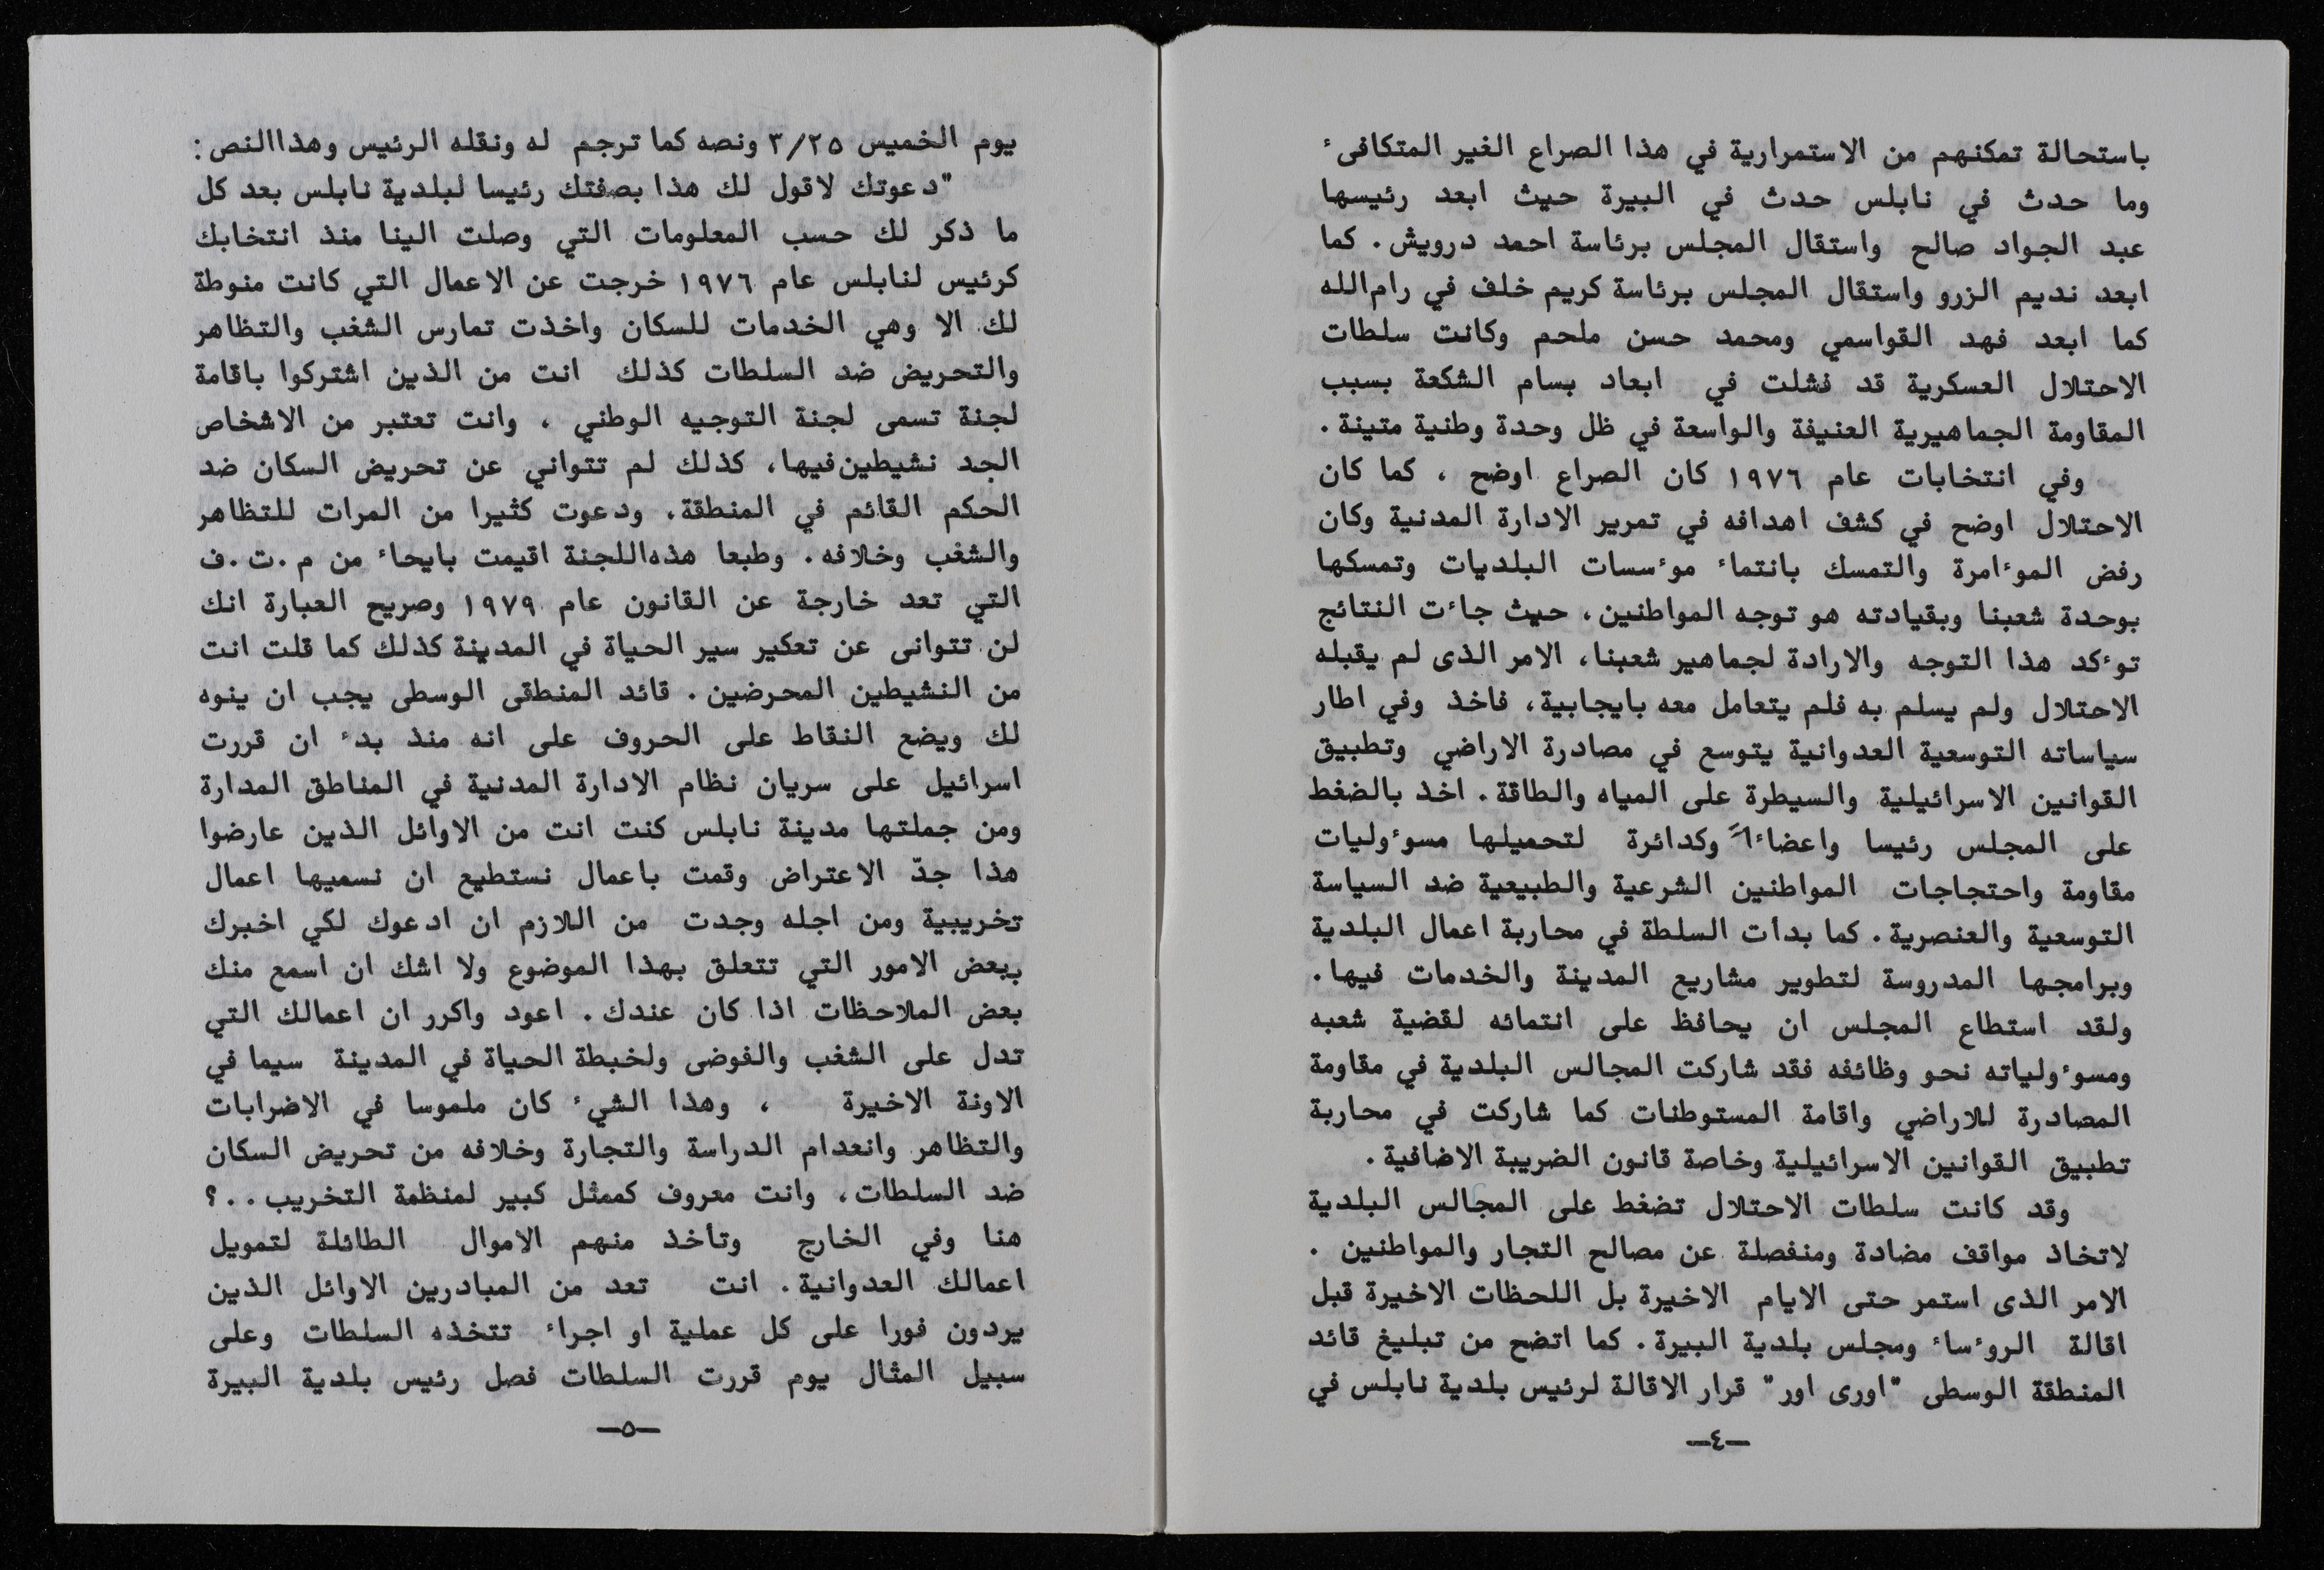 باستحالة تمكنهم من الاستمرارية في هذا الصراع الغير المتكافىء
وما حدث في نابلس حدث في البيرة حيث ابعد رئيسها
عبد الجواد صالح واستقال المجلس برئاسة احمد درويش. كما
ابعد نديم الزرو واستقال المجلس برئاسة كريم خلف في رام الله
كما ابعد فهد القواسمي ومحمد حسن ملحم وكانت سلطات
الاحتلال العسكرية قد فشلت في ابعاد بسام الشكعة بسبب
المقاومة الجماهيرية العنيفة والواسعة في ظل وحدة وطنية متينة.
وفي انتخابات عام ١٩٧٦ كان الصراع اوضح ، كما كان
الاحتلال اوضح في كشف اهدافه في تمرير الادارة المدنية وكان
رفض الموءامرة والتمسك بانتماء موءسسات البلديات وتمسكها
بوحدة شعبنا وبقيادته هو توجه المواطنين، حيث جاءت النتائج
توءكد هذا التوجه والارادة لجماهير شعبنا، الامر الذى لم يقبله
الاحتلال ولم يسلم به فلم يتعامل معه بايجابية، فاخذ وفي اطار
سياساته التوسعية العدوانية يتوسع في مصادرة الاراضي وتطبيق
القوانين الاسرائيلية والسيطرة على المياه والطاقة. اخذ بالضغط
على المجلس رئيسا واعضاءاً وكدائرة لتحميلها مسوءوليات
مقاومة واحتجاجات المواطنين الشرعية والطبيعية ضد السياسة
التوسعية والعنصرية. كما بدأت السلطة في محاربة اعمال البلدية
وبرامجها المدروسة لتطوير مشاريع المدينة والخدمات فيها.
ولقد استطاع المجلس ان يحافظ على انتمائه لقضية شعبه
ومسوءولياته نحو وظائفه فقد شاركت المجالس البلدية في مقاومة
المصادرة للاراضي واقامة المستوطنات كما شاركت في محاربة
تطبيق القوانين الاسرائيلية وخاصة قانون الضريبة الاضافية.
وقد كانت سلطات الاحتلال تضغط على المجالس البلدية
لاتخاذ مواقف مضادة ومنفصلة عن مصالح التجار والمواطنين .
الامر الذى استمر حتى الايام الاخيرة بل اللحظات الاخيرة قبل
اقالة الروءساء ومجلس بلدية البيرة. كما اتضح من تبليغ قائد
المنطقة الوسطى "اورى اور" قرار الاقالة لرئيس بلدية نابلس في
—٤—
يوم الخميس ٣/٢٥ ونصه كما ترجم له ونقله الرئيس وهذا النص:
"دعوتك لاقول لك هذا بصفتك رئيسا لبلدية نابلس بعد كل
ما ذكر لك حسب المعلومات التي وصلت الينا منذ انتخابك
كرئيس لنابلس عام ١٩٧٦ خرجت عن الاعمال التي كانت منوطة
لك الا وهي الخدمات للسكان واخذت تمارس الشغب والتظاهر
والتحريض ضد السلطات كذلك انت من الذين اشتركوا باقامة
لجنة تسمى لجنة التوجيه الوطني ، وانت تعتبر من الاشخاص
الجد نشيطين فيها، كذلك لم تتواني عن تحريض السكان ضد
الحكم القائم في المنطقة، ودعوت كثيرا من المرات للتظاهر
والشغب وخلافه. وطبعا هذه اللجنة اقيمت بايحاء من م.ت.ف
التي تعد خارجة عن القانون عام ١٩٧٩ وصريح العبارة انك
لن تتوانى عن تعكير سير الحياة في المدينة كذلك كما قلت انت
من النشيطين المحرضين. قائد المنطقى الوسطى يجب ان ينوه
لك ويضع النقاط على الحروف على انه منذ بدء ان قررت
اسرائيل على سريان نظام الادارة المدنية في المناطق المدارة
ومن جملتها مدينة نابلس كنت انت من الاوائل الذين عارضوا
هذا جدّ الاعتراض وقمت باعمال نستطيع ان نسميها اعمال
تخريبية ومن اجله وجدت من اللازم ان ادعوك لكي اخبرك
ببعض الامور التي تتعلق بهذا الموضوع ولا اشك ان اسمع منك
بعض الملاحظات اذا كان عندك. اعود واكرر ان اعمالك التي
تدل على الشغب والفوضى ولخبطة الحياة في المدينة سيما في
الاونة الاخيرة ، وهذا الشيء كان ملموسا في الاضرابات
والتظاهر وانعدام الدراسة والتجارة وخلافه من تحريض السكان
ضد السلطات، وانت معروف كممثل كبير لمنظمة التخريب..؟
هنا وفي الخارج وتأخذ منهم الاموال الطائلة لتمويل
اعمالك العدوانية. انت تعد من المبادرين الاوائل الذين
يردون فورا على كل عملية او اجراء تتخذه السلطات وعلى
سبيل المثال يوم قررت السلطات فصل رئيس بلدية البيرة
—٥—